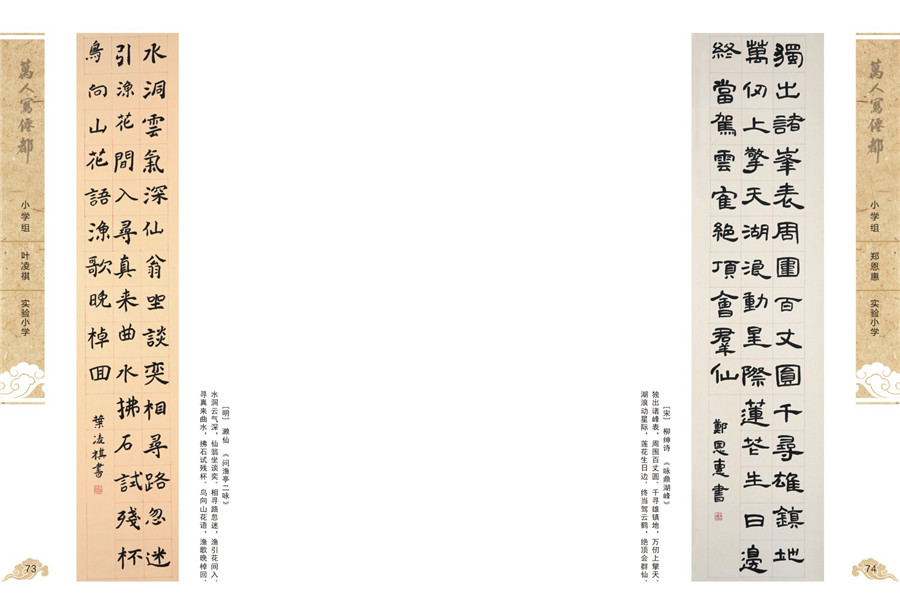 萬人寫仙都
小学组 叶凌祺 实验小学
水洞雲氣深仙翁坐談奕相尋路忽迷
引漁花間入尋真来曲水拂石試殘杯
鳥向山花語漁歌晚棹囬
葉凌祺書
［明］ 濑仙 《问渔亭二咏》
水洞云气深，仙翁坐谈奕。相寻路忽迷，渔引花间入。
寻真来曲水，拂石试残杯。鸟向山花语，渔歌晚棹回。
73
獨出諸峯表周圍百丈圓千尋雄鎮地
萬仞上擎天湖浪動星際蓮花生日邊
終當駕雲隺絕頂會羣仙
鄭恩惠書
［宋］ 柳绅诗 《咏鼎湖峰》
独出诸峰表，周围百丈圆。千寻雄镇地，万仞上擎天。
湖浪动星际，莲花生日边。终当驾云鹤，绝顶会群仙。
萬人寫仙都
小学组 郑恩惠 实验小学
74